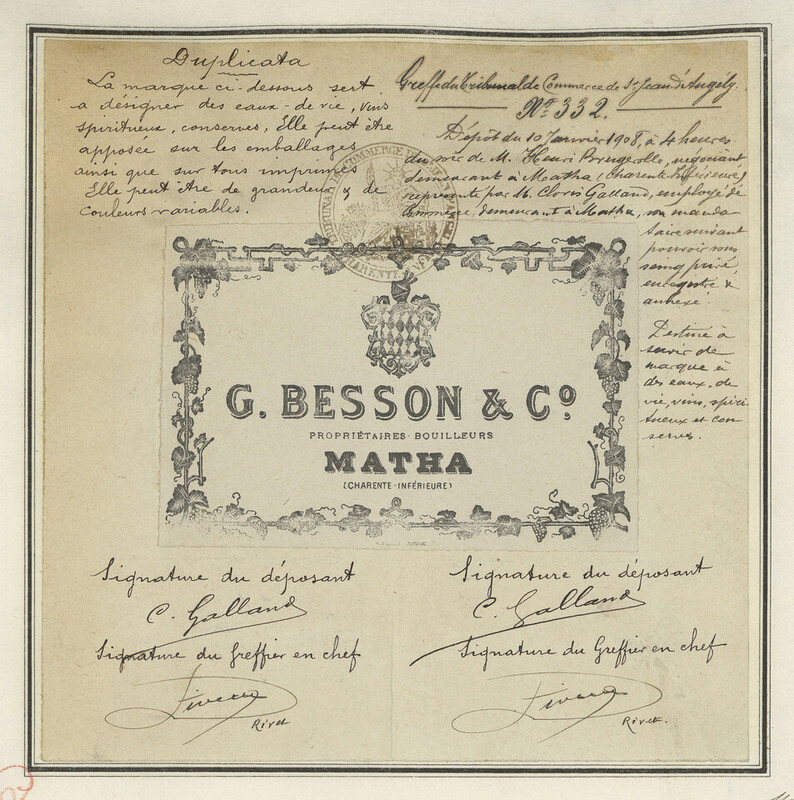 Duplicata
La marque ci-dessous sert
a désigner des eaux-de-vie, vins
spiritueux, conserves, Elle peut être
apposée sur les emballages
ainsi que sur tous imprimés
Elle peut être de grandeur & de
couleurs variables.
Greffe du Tribunal de Commerce de St Jean d'Angély.
No 332.
Dépôt du 10 Janvier 1908, à 4 heures
du soir de M. Henri Brugerolle, négociant
demeurant à Matha (Charente Inférieure)
représenté par M. Cloris Galland, employé de
Commerce, demeurant à Matha, son manda-
taire suivant
pouvoir sous
seing privé,
enregistré &
annexé.
Destiné à
servir de
marque à
des eaux-de
vie, vins, spiri-
tueux et con
serves.
TRIBUNAL DE COMMERCE
CHARENTE
G. BESSON & Co
PROPRIÉTAIRES-BOUILLEURS
MATHA
(CHARENTE-INFÉRIEURE)
Signature du déposant
C. Galland
Signature du Greffier en chef
Rivet
Signature du déposant
C. Galland
Signature du Greffier en chef
Rivet.